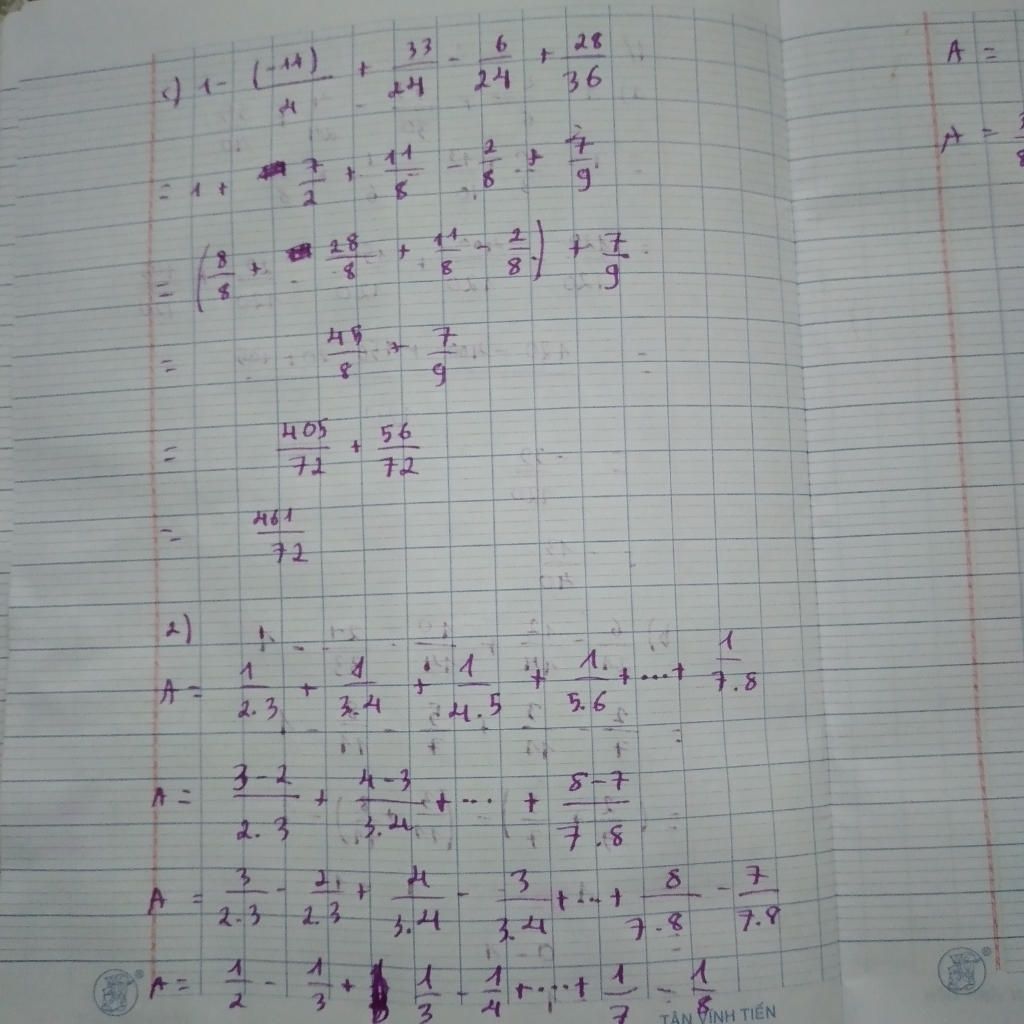 c) 1 - (-14)/4 + 33/24 - 6/24 + 28/36
= 1 + 7/2 + 11/8 - 2/8 + 7/9
= (8/8 + 28/8 + 11/8 - 2/8) + 7/9
= 45/8 + 7/9
= 405/72 + 56/72
= 461/72
2)
A = 1/2.3 + 1/3.4 + 1/4.5 + 1/5.6 + ... + 1/7.8
A = 3-2/2.3 + 4-3/3.4 + ... + 8-7/7.8
A = 3/2.3 - 2/2.3 + 4/3.4 - 3/3.4 + ... + 8/7.8 - 7/7.8
A = 1/2 - 1/3 + 1/3 - 1/4 + ... + 1/7 - 1/8
TÂN VĨNH TIẾN
A =
A = 3/8